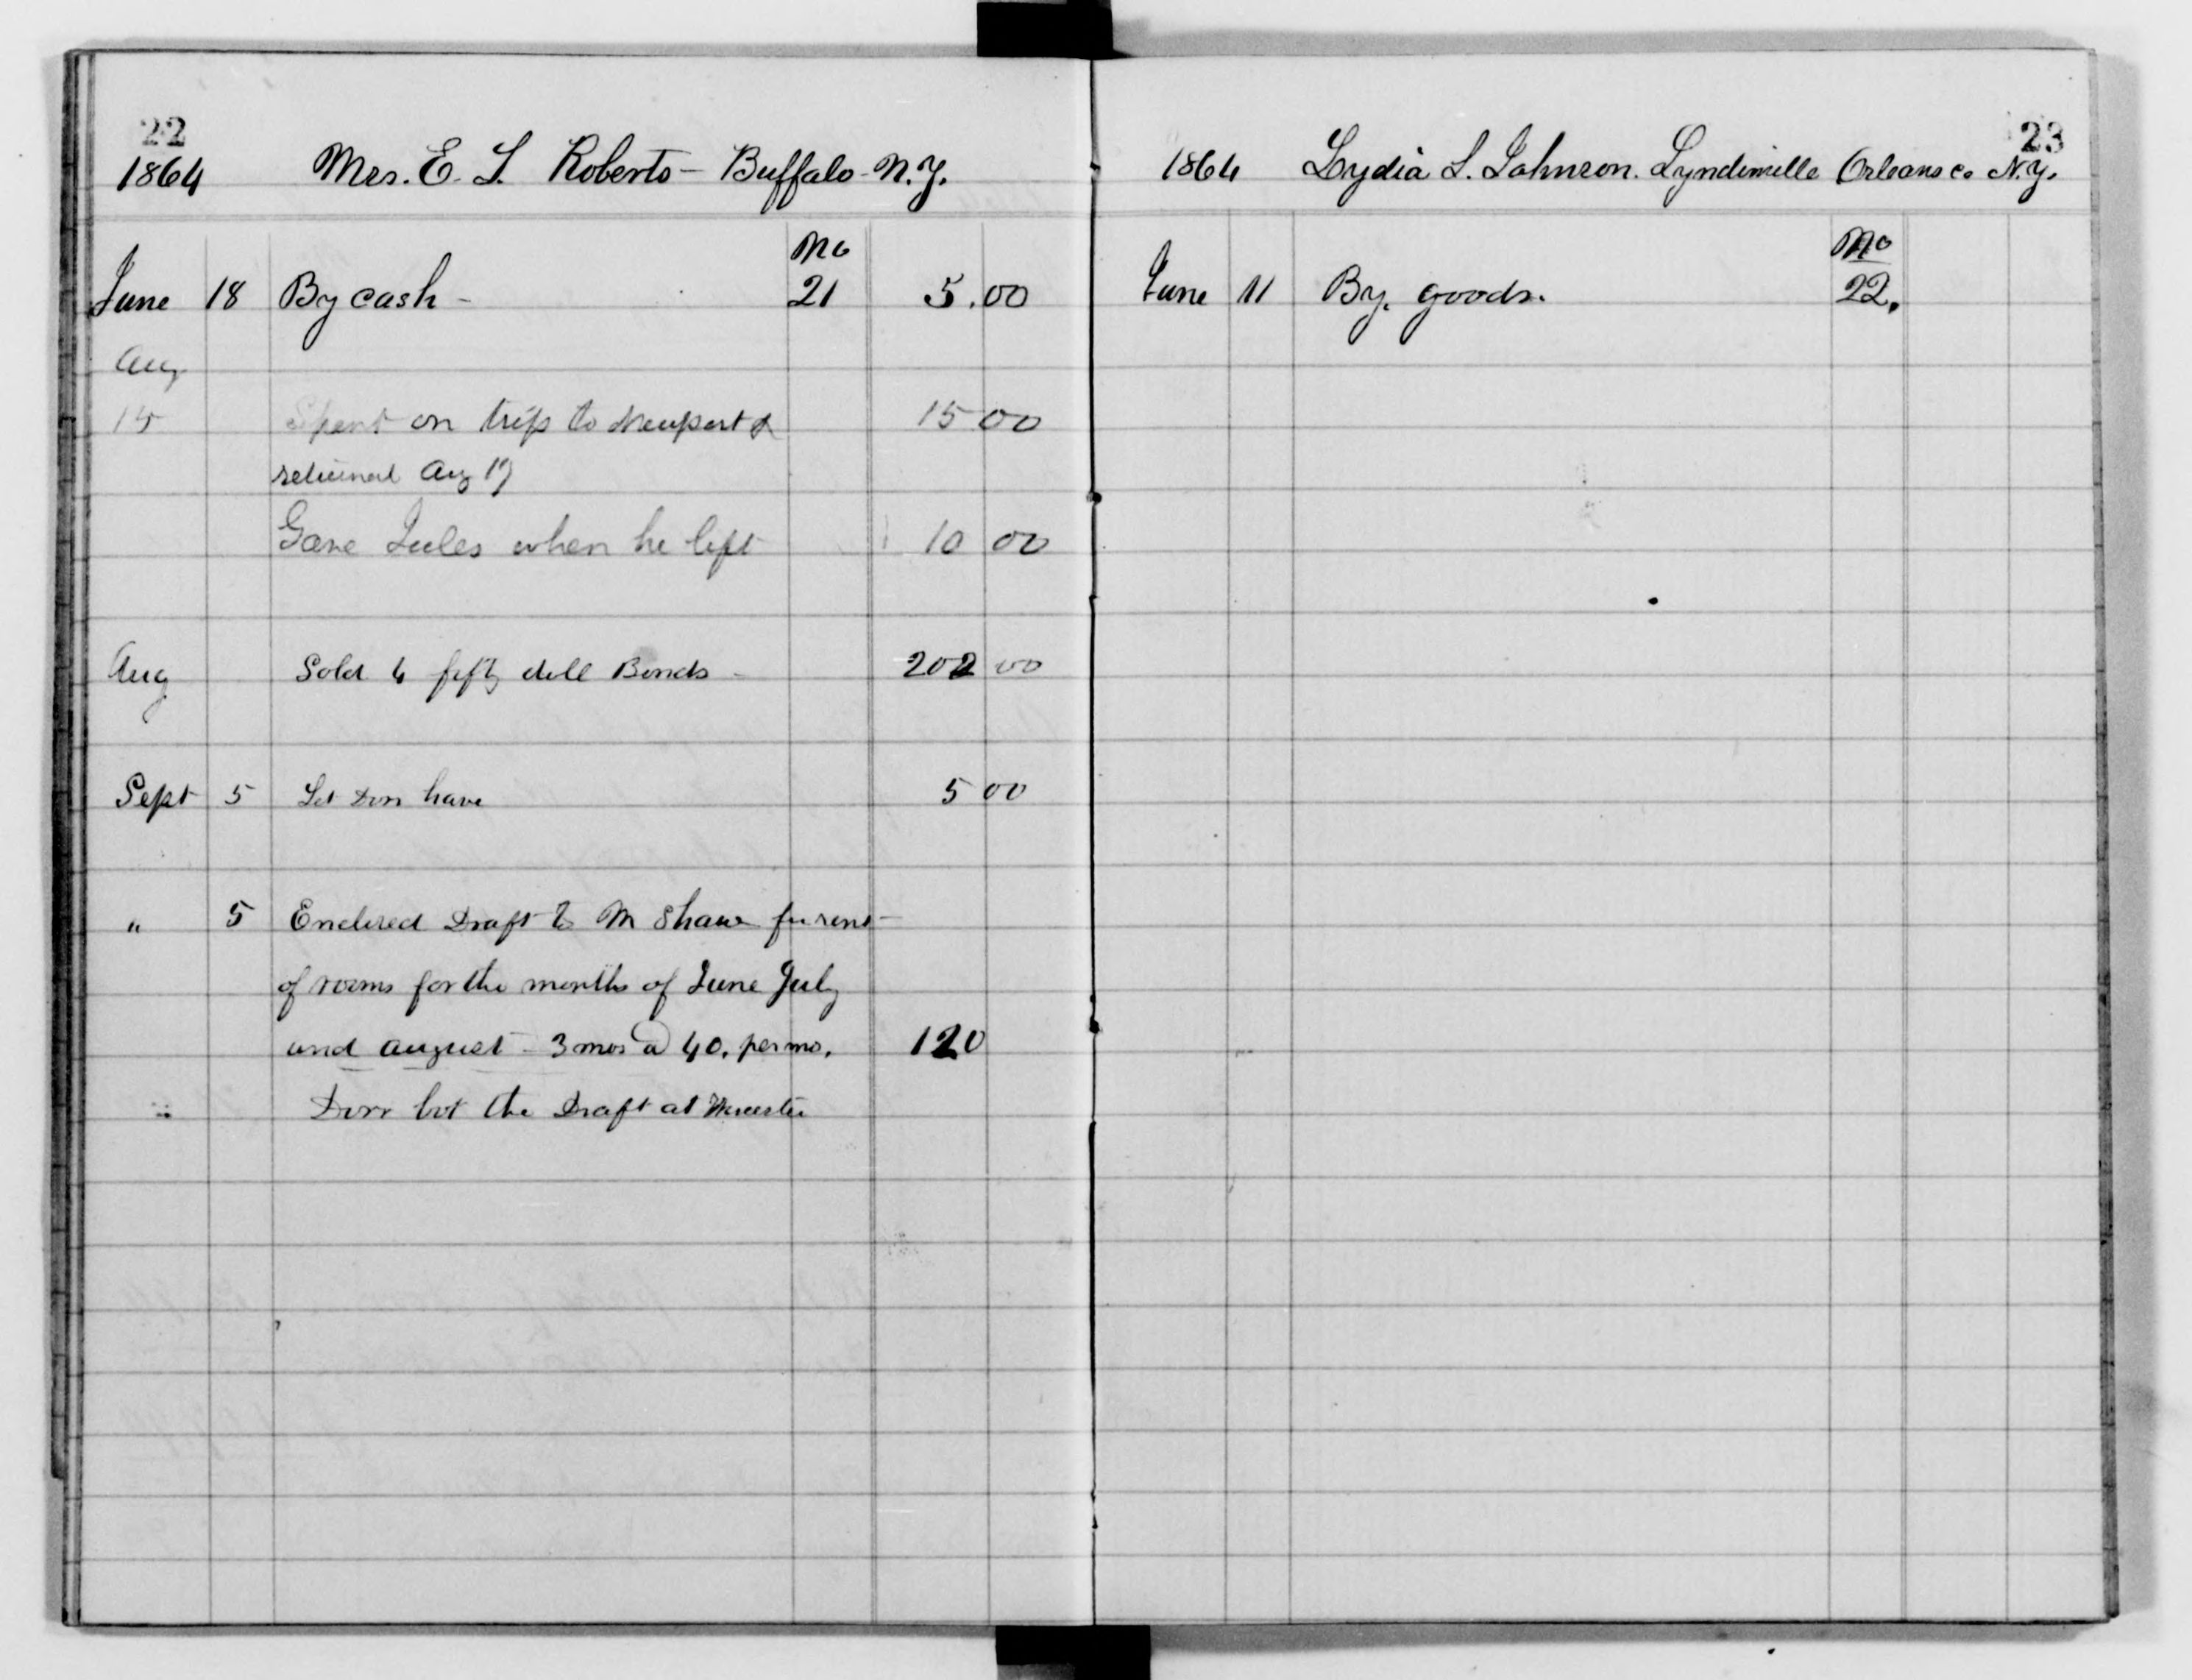 22
1864 Mrs. E. L. Roberts - Buffalo - N.Y.
No
June 18 By cash - 21 5.00
Aug
15 Spent on trip to Newport & 15 00
returned Aug 17
Gave Jules when he left 10 00
Aug Sold 4 fifty doll Bonds - 202 00
Sept 5 Let Dorr have 5 00
" 5 Enclosed Draft to M Shaw for rent
of rooms for the months of June July
and august - 3 mos @ 40. per mo. 120
Dorr bot the Draft at Worcester
23
1864 Lydia L. Johnson. Lyndinville Orleans Co N.Y.
No
June 11 By. goods. 22.